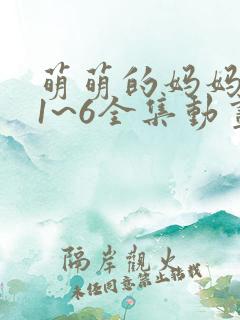 萌萌的妈妈
1~6全集動畫
隔岸觀火
未经同意禁止转载